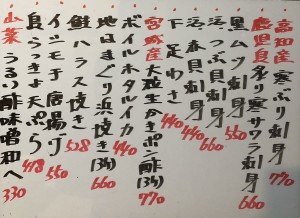 高知産 寒ぶり刺身 770
鹿児島産 炙り寒サワラ刺身 660
黒ムツ刺身 660
活つぶ貝刺身 550
活赤貝刺身 440
下足わさ 440
宮城産 大粒生かきポン酢(3ヶ) 770
ボイルホタルイカ 440
地はまぐり浜焼き(3ヶ) 660
鮭ハラス焼き 528
イシモチ唐揚げ 550
島らっきょ天ぷら 418
山菜 うるい酢味噌和へ 330